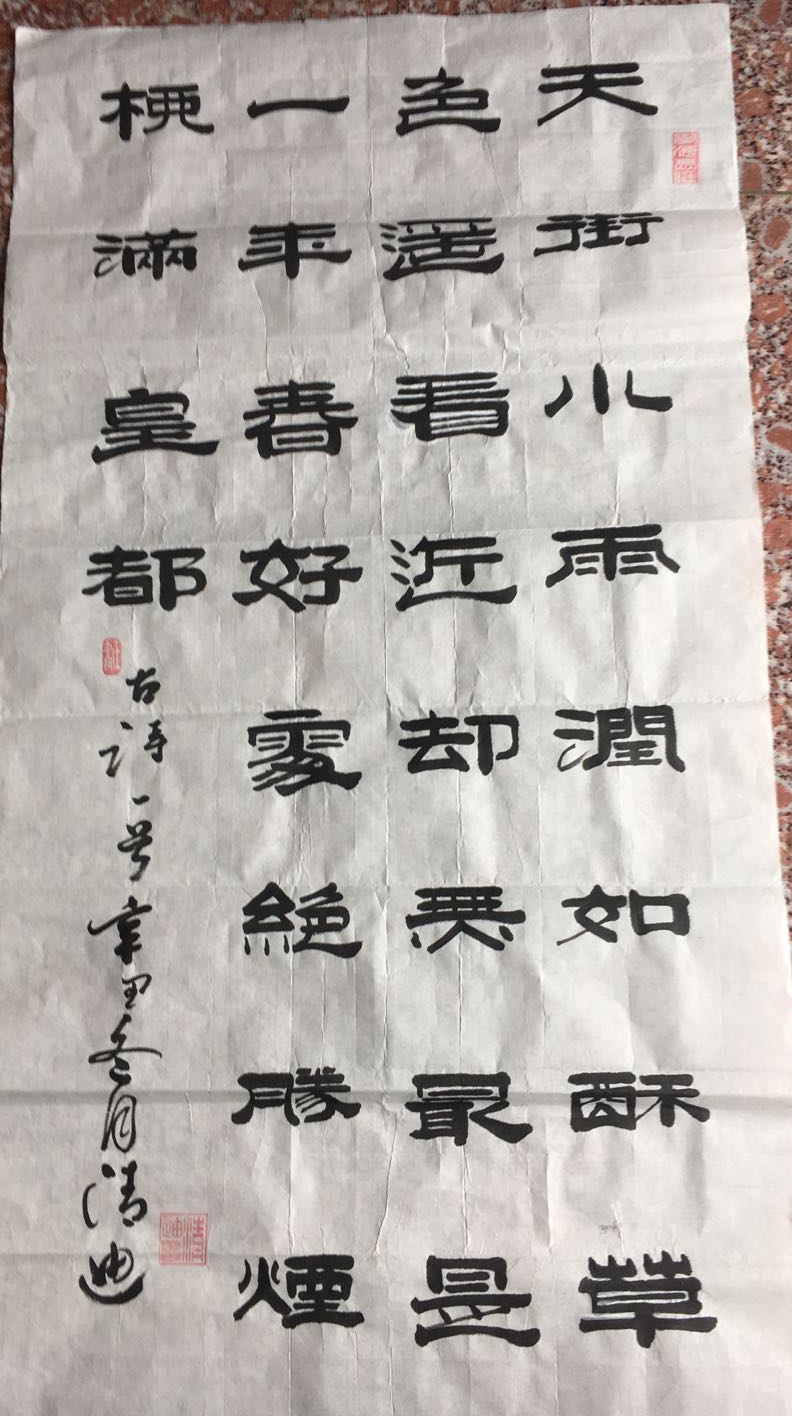 天街小雨潤如酥草
色遥看近却無最是
一年春好處絶勝煙
柳滿皇都
古诗一首辛丑冬月清迪